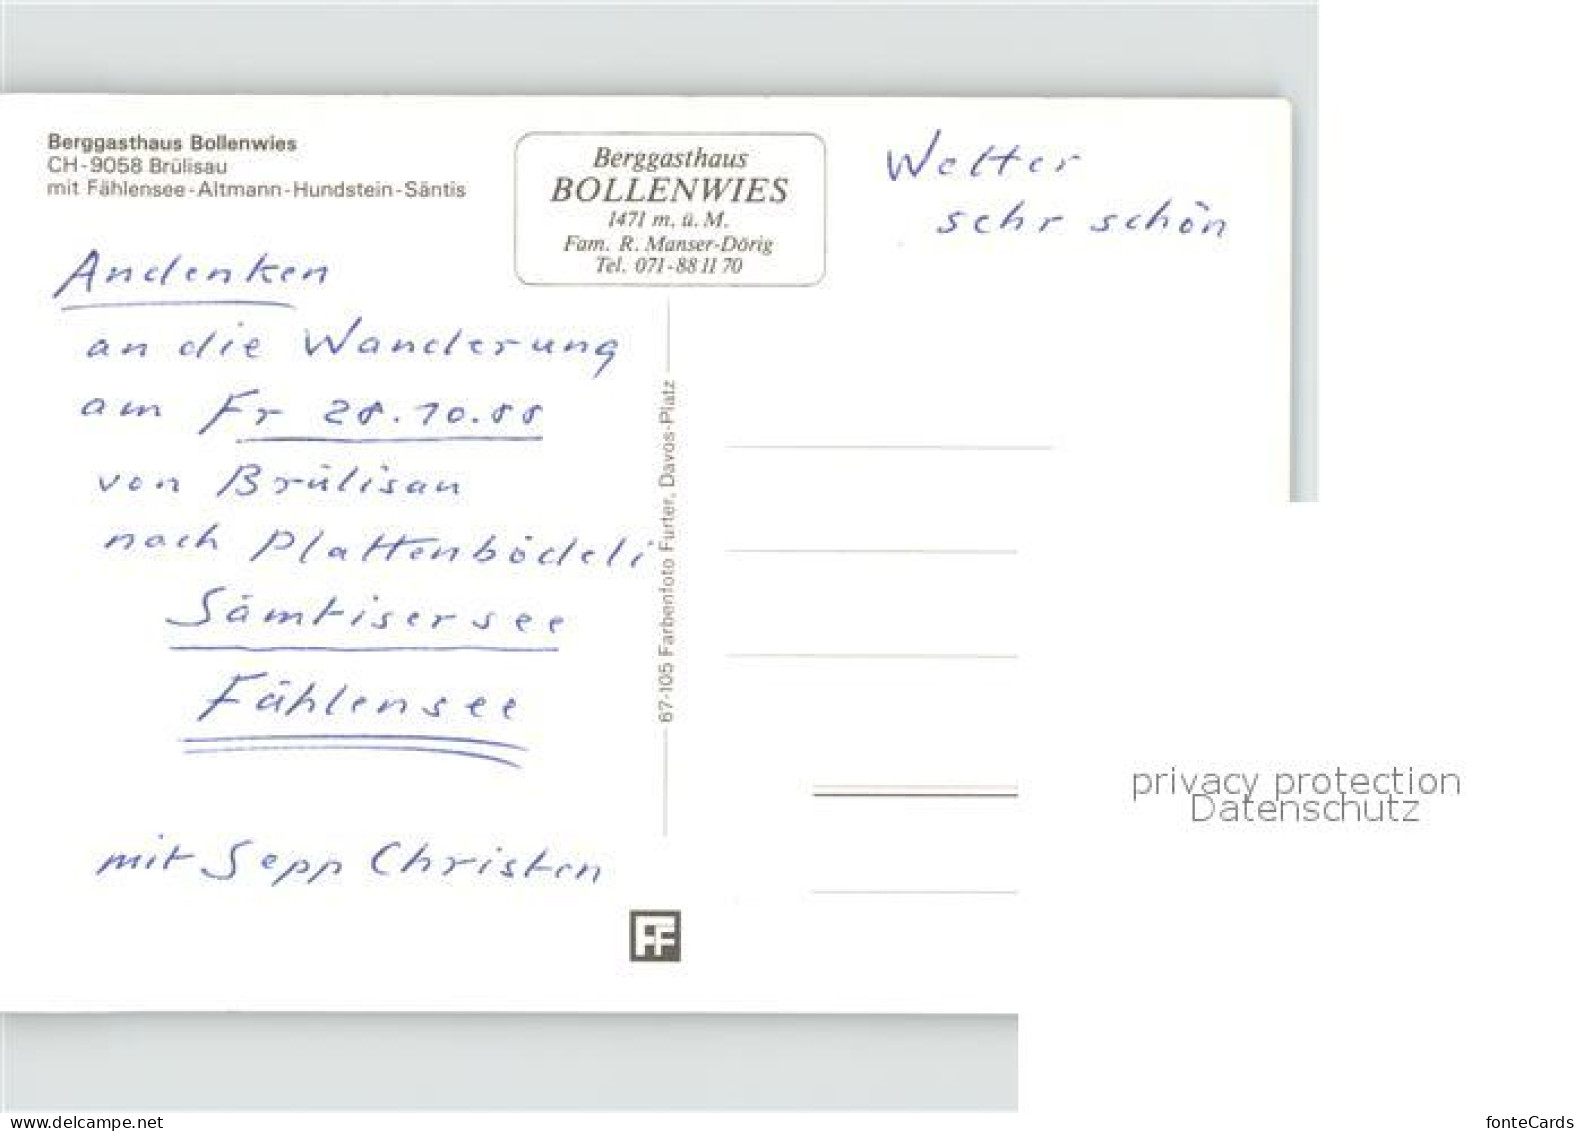 Berggasthaus Bollenwies
CH-9058 Brülisau
mit Fählensee-Altmann-Hundstein-Säntis
Berggasthaus
BOLLENWIES
1471 m. ü. M.
Fam. R. Manser-Dörig
Tel. 071-88 11 70
Wetter
sehr schön
Andenken
an die Wanderung
am Fr 28.10.88
von Brülisau
nach Plattenbödeli
Sämtisersee
Fählensee
mit Sepp Christen
67-105 Farbenfoto Furter, Davos-Platz
FF
privacy protection
Datenschutz
www.delcampe.net
fonteCards